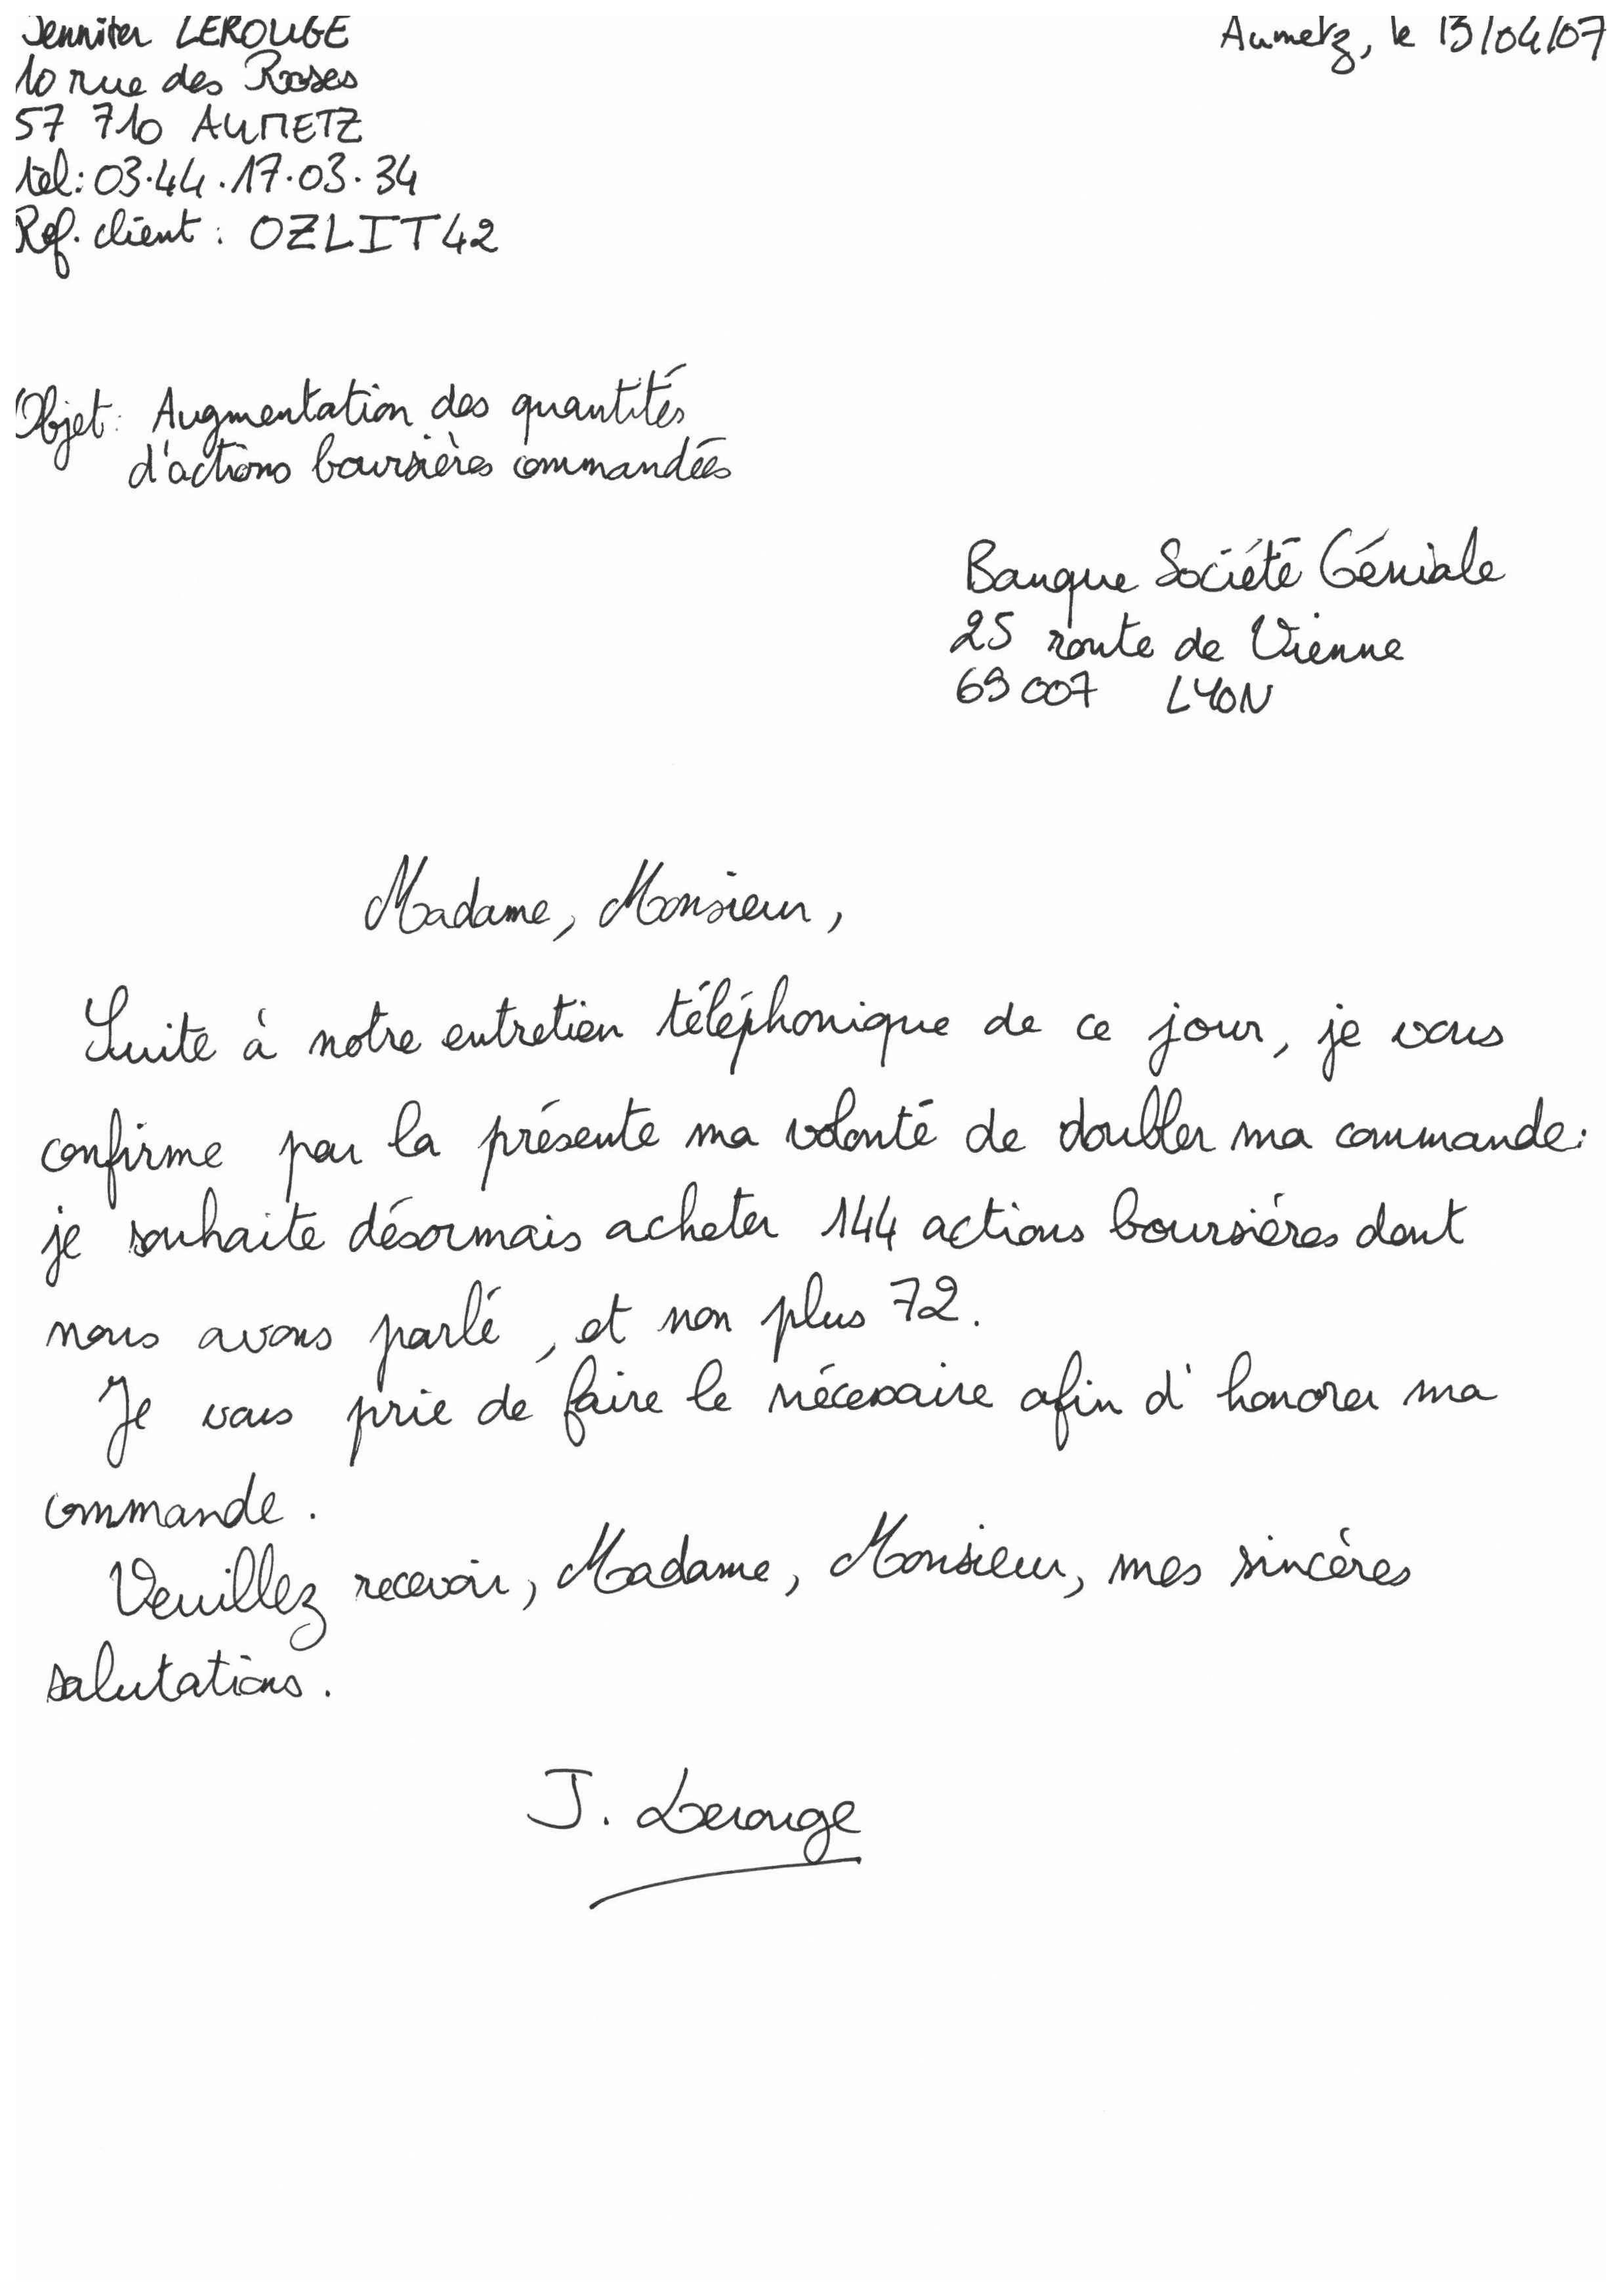 Jennifer LEROUGE
10 rue des Roses
57 710 AUMETZ
tél: 03.44.17.03.34
Ref. client : OZLIT42
Aumetz, le 13/04/07
Objet: Augmentation des quantités
d'actions boursières commandées
Banque Société Géniale
25 route de Vienne
69007 LYON
Madame, Monsieur,
Suite à notre entretien téléphonique de ce jour, je vous
confirme par la présente ma volonté de doubler ma commande:
je souhaite désormais acheter 144 actions boursières dont
nous avons parlé, et non plus 72.
Je vous prie de faire le nécessaire afin d'honorer ma
commande.
Veuillez recevoir, Madame, Monsieur, mes sincères
salutations.
J. Lerouge